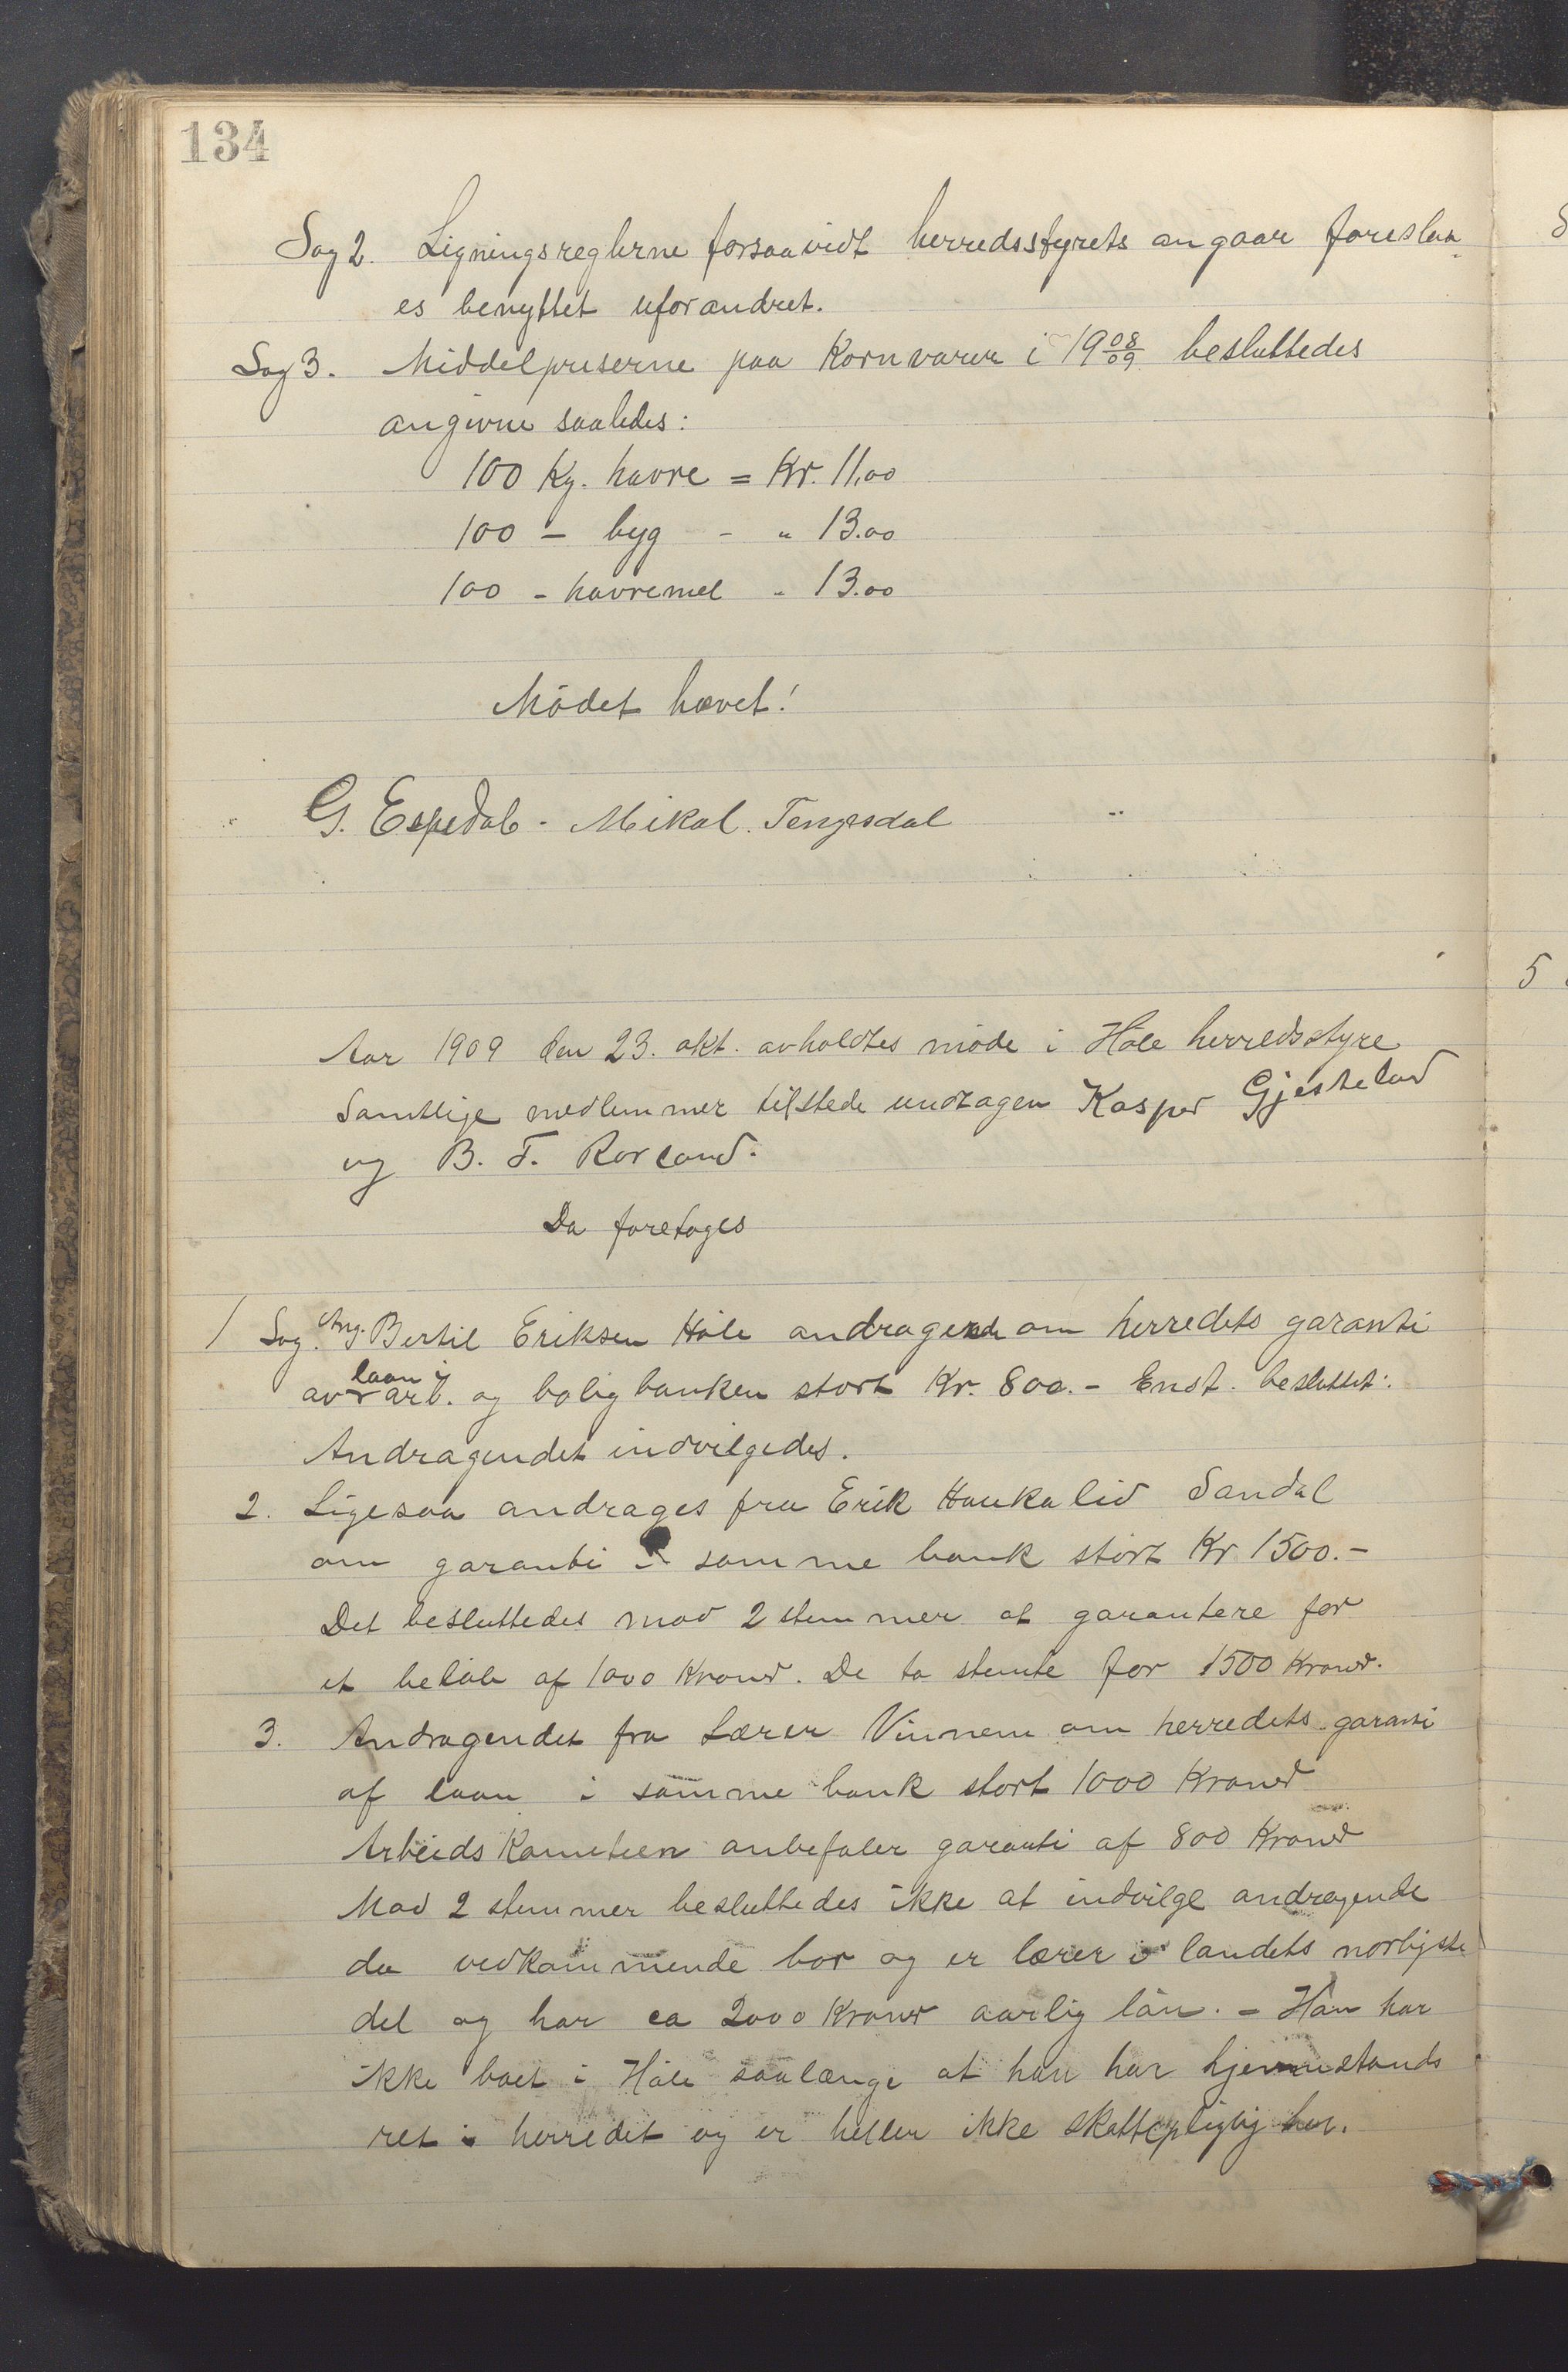 134
Sag 2. Ligningsreglerne forsaavidt herredsstyrets angaar foreslaa-
es benyttet uforandret.
Sag 3. Middelpriserne paa Kornvarer i 19 08/09 besluttedes
angivne saaledes:
100 Kg. havre = Kr. 11,00
100 – byg - " 13.00
100 - havremel - 13.00
Mødet hævet!
G. Espedal - Mikal. Tengesdal
Aar 1909 den 23. okt. avholdtes møde i Høle herredsstyre
Samtlige medlemmer tilstede undtagen Kasper Gjesteland
og B. T. Rorland.
Da foretoges
1 Sag. Ang. Bertil Eriksen Høle andragende om herredets garanti
av laan i arb. og boligbanken stort Kr. 800.- Enst. besluttet:
Andragendet indvilgedes.
2. Ligesaa andrages fra Erik Haukalid Sandal
om garanti i samme bank stort Kr 1500.-
Det besluttedes mod 2 stemmer at garantere for
et beløb af 1000 Kroner. De to stemte for 1500 Kroner.
3. Andragendet fra Lærer Vinnem om herredets garanti
af laan i samme bank stort 1000 Kroner
Arbeids Komiteen anbefaler garanti af 800 Kroner
Mod 2 stemmer besluttedes ikke at indvilge andragende
da vedkommende bor og er lærer i landets nordligste
del og har ca 2000 Kroner aarlig løn. - Han har
ikke boet i Høle saalænge at han har hjemstands
ret i herredet og er heller ikke skattepligtig her.
5